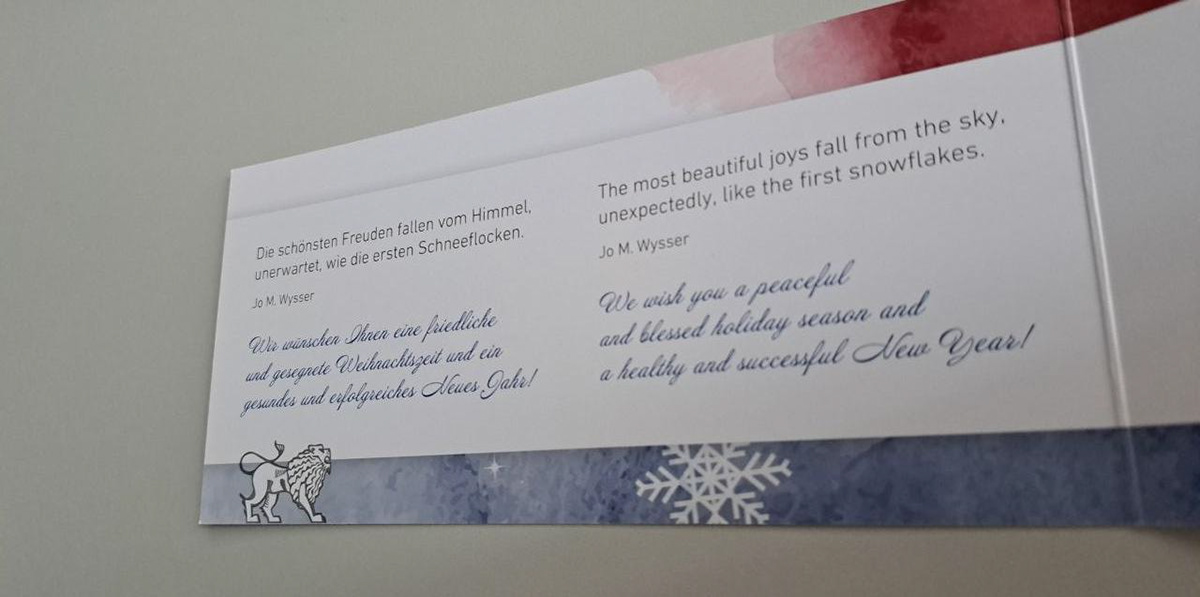 Die schönsten Freuden fallen vom Himmel,
unerwartet, wie die ersten Schneeflocken.
Jo M. Wysser
Wir wünschen Ihnen eine friedliche
und gesegnete Weihnachtszeit und ein
gesundes und erfolgreiches Neues Jahr!
The most beautiful joys fall from the sky,
unexpectedly, like the first snowflakes.
Jo M. Wysser
We wish you a peaceful
and blessed holiday season and
a healthy and successful New Year!